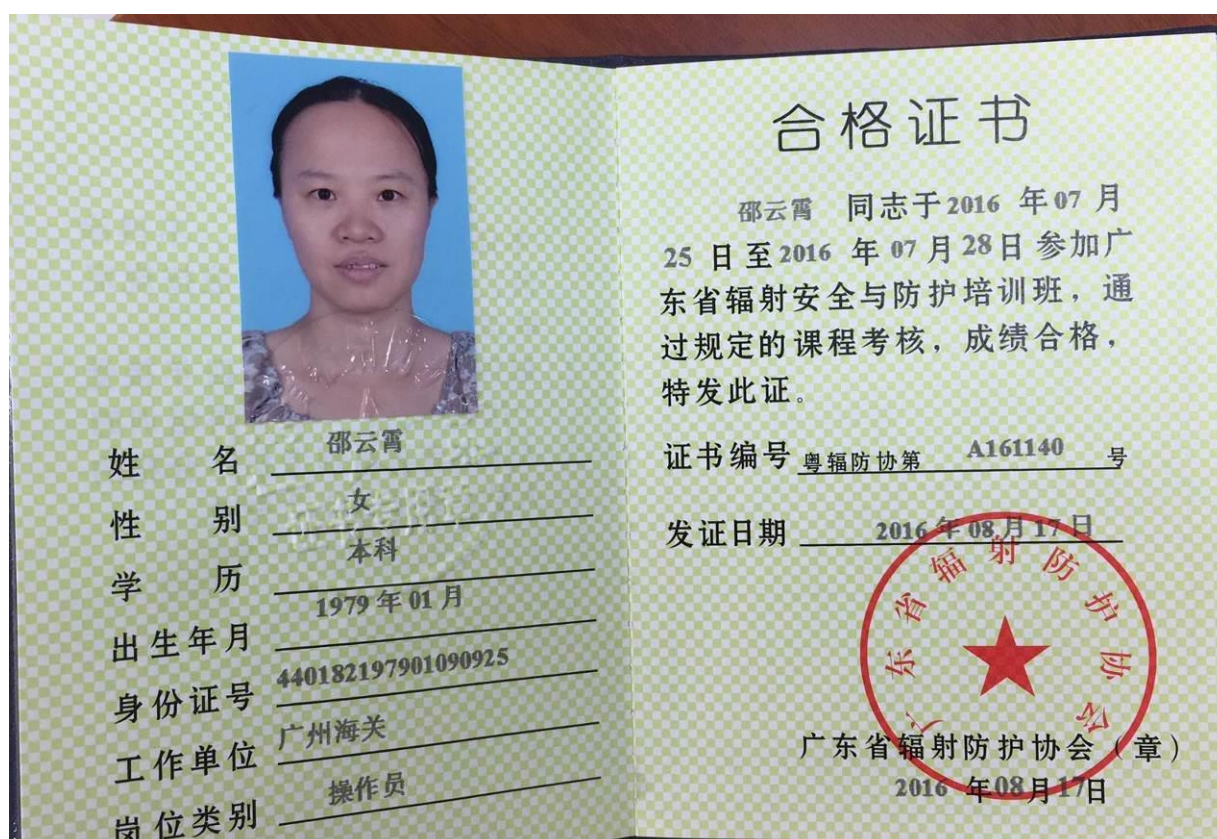 姓名 邵云霄
性别 女
学历 本科
出生年月 1979年01月
身份证号 440182197901090925
工作单位 广州海关
岗位类别 操作员
合格证书
邵云霄 同志于2016年07月
25日至2016年07月28日参加广
东省辐射安全与防护培训班，通
过规定的课程考核，成绩合格，
特发此证。
证书编号 粤辐防协第 A161140 号
发证日期 2016年08月17日
广东省辐射防护协会
广东省辐射防护协会（章）
2016年08月17日